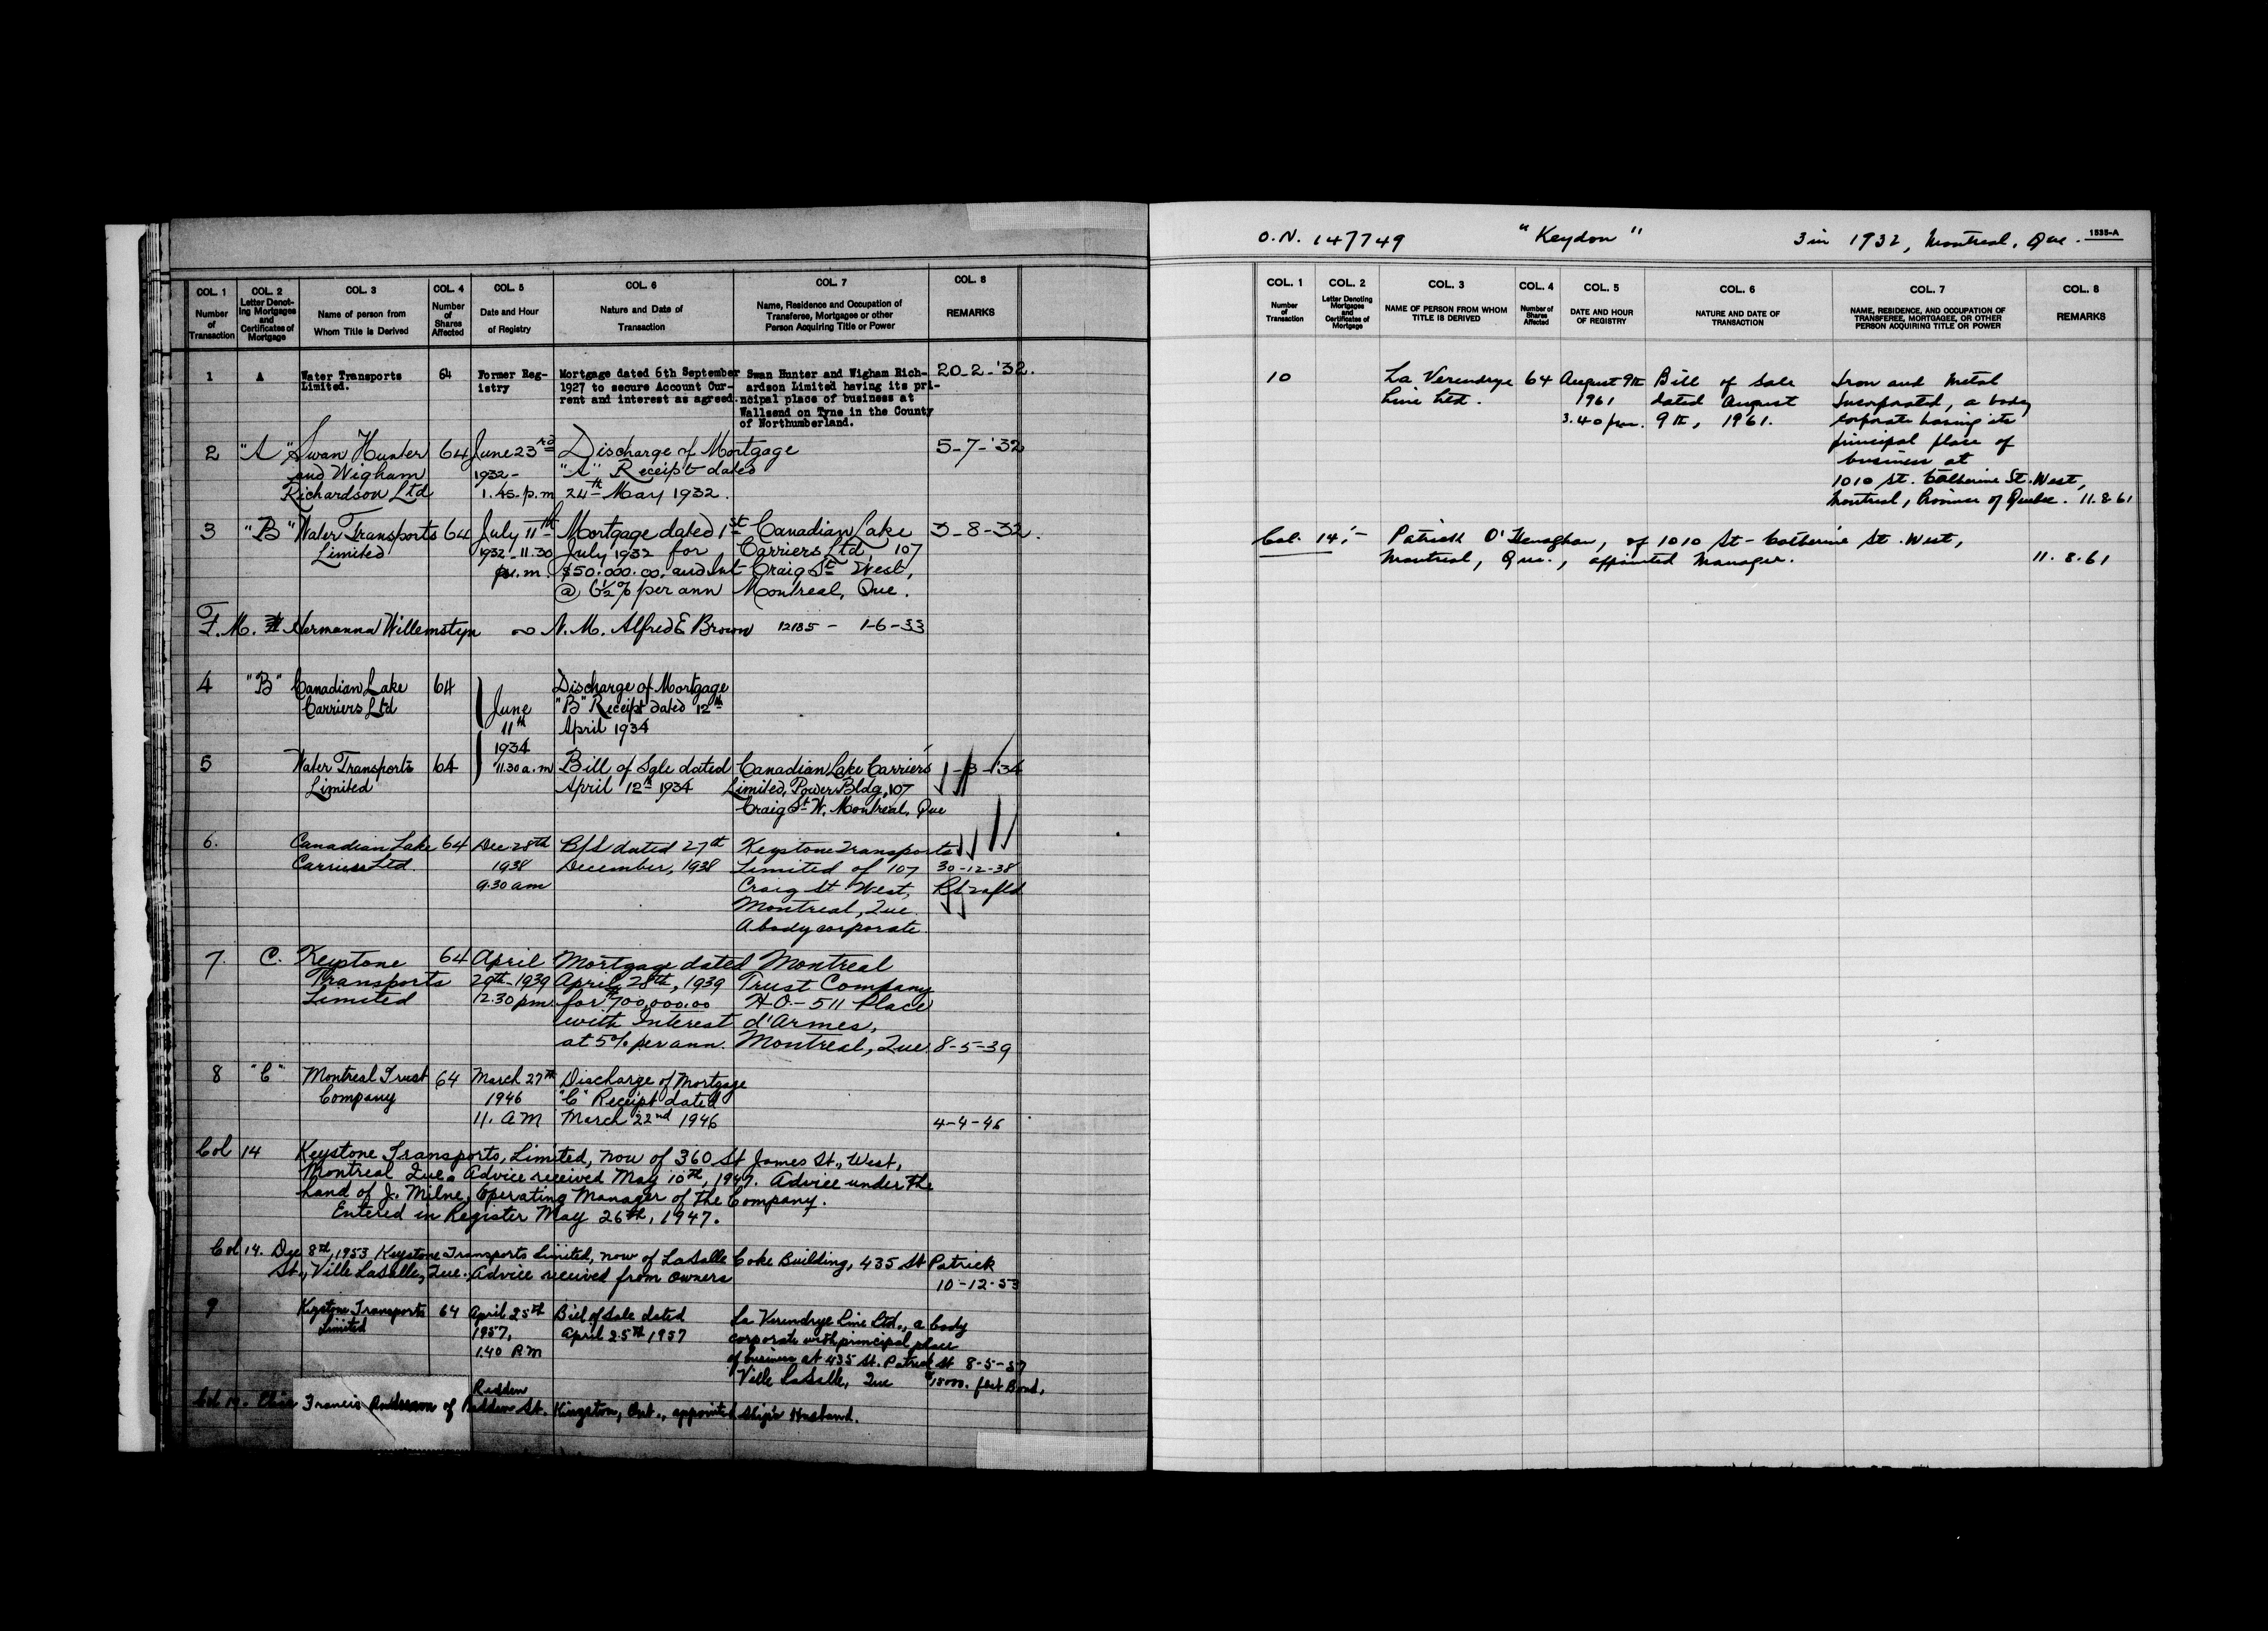 COL. 1 COL. 2 COL. 3 COL. 4 COL. 5 COL. 6 COL. 7 COL. 8
Number of Transaction
Letter Denoting Mortgages and Certificates of Mortgage
Name of person from Whom Title is Derived
Number of Shares Affected
Date and Hour of Registry
Nature and Date of Transaction
Name, Residence and Occupation of Transferee, Mortgagee or other Person Acquiring Title or Power
REMARKS
1 A Water Transports 64 Former Reg- Mortgage dated 6th September Swan Hunter and Wigham Rich- 20-2-'32.
Limited. istry 1927 to secure Account Cur- ardson Limited having its pri-
rent and interest as agreed. ncipal place of business at
Wallsend on Tyne in the County
of Northumberland.
2 "A" Swan Hunter 64 June 23rd Discharge of Mortgage 5-7-'32
and Wigham 1932- "A" Receipt dated
Richardson Ltd 1.45.p.m 24th May 1932.
3 "B" Water Transports 64 July 11th Mortgage dated 1st Canadian Lake 3-8-32.
Limited 1932-11.30 July 1932 for Carriers Ltd, 107
.m. $50.000.00. and Int Craig St West,
@ 6½% per ann Montreal, Que.
F.M. Hermanna Willemstyn N.M. Alfred E Brown 12185 - 1-6-33
4 "B" Canadian Lake 64 Discharge of Mortgage
Carriers Ltd June "B" Receipt dated 12th
11th April 1934
1934
5 Water Transports 64 11.30 a.m Bill of Sale dated Canadian Lake Carriers
Limited April 12th 1934 Limited, Power Bldg, 107
Craig St W. Montreal, Que
6. Canadian Lake 64 Dec 28th B/S dated 27th Keystone Transports
Carriers Ltd. 1938 December, 1938 Limited of 107 30-12-38
9.30 am Craig St West,
Montreal, Que.
A body corporate
7. C. Keystone 64 April Mortgage dated Montreal
Transports 29th-1939 April 28th, 1939 Trust Company
Limited 12.30 pm. for $700,000.00 H.O.-511 Place
with Interest d'Armes,
at 5% per ann. Montreal, Que. 8-5-39
8 "C" Montreal Trust 64 March 27th Discharge of Mortgage
Company 1946 "C" Receipt dated
11. AM March 22nd 1946 4-4-46
Col 14 Keystone Transports, Limited, now of 360 St James St., West,
Montreal Que. Advice received May 10th, 1947. Advice under the
hand of J. Milne, Operating Manager of the Company.
Entered in Register May 26th, 1947.
Col 14. Dec 8th, 1953 Keystone Transports Limited, now of LaSalle Coke Building, 435 St Patrick
St., Ville LaSalle, Que. Advice received from owners
10-12-53
9 Keystone Transports 64 April 25th Bill of Sale dated La Verendrye Line Ltd., a body
Limited 1957, April 25th 1957 corporate with principal place
1.40 P.M of business at 435 St. Patrick St 8-5-57
Ville LaSalle, Que
Redden
Col 14. Francis of St. Kingston, Ont., appointed Ship's Husband.
O.N. 147749 "Keydon" 3 in 1932, Montreal, Que. 1535-A
COL. 1 COL. 2 COL. 3 COL. 4 COL. 5 COL. 6 COL. 7 COL. 8
Number of Transaction
Letter Denoting Mortgages and Certificates of Mortgage
NAME OF PERSON FROM WHOM TITLE IS DERIVED
Number of Shares Affected
DATE AND HOUR OF REGISTRY
NATURE AND DATE OF TRANSACTION
NAME, RESIDENCE, AND OCCUPATION OF TRANSFEREE, MORTGAGEE, OR OTHER PERSON ACQUIRING TITLE OR POWER
REMARKS
10 La Verendrye 64 August 9th Bill of Sale Iron and Metal
Line Ltd. 1961 dated August Incorporated, a body
3.40 p.m. 9th, 1961. corporate having its
principal place of
business at
1010 St. Catherine St. West,
Montreal, Province of Quebec. 11.8.61
Col. 14:- Patrick O'Henaghan, of 1010 St-Catherine St. West,
Montreal, Que., appointed Manager. 11.8.61